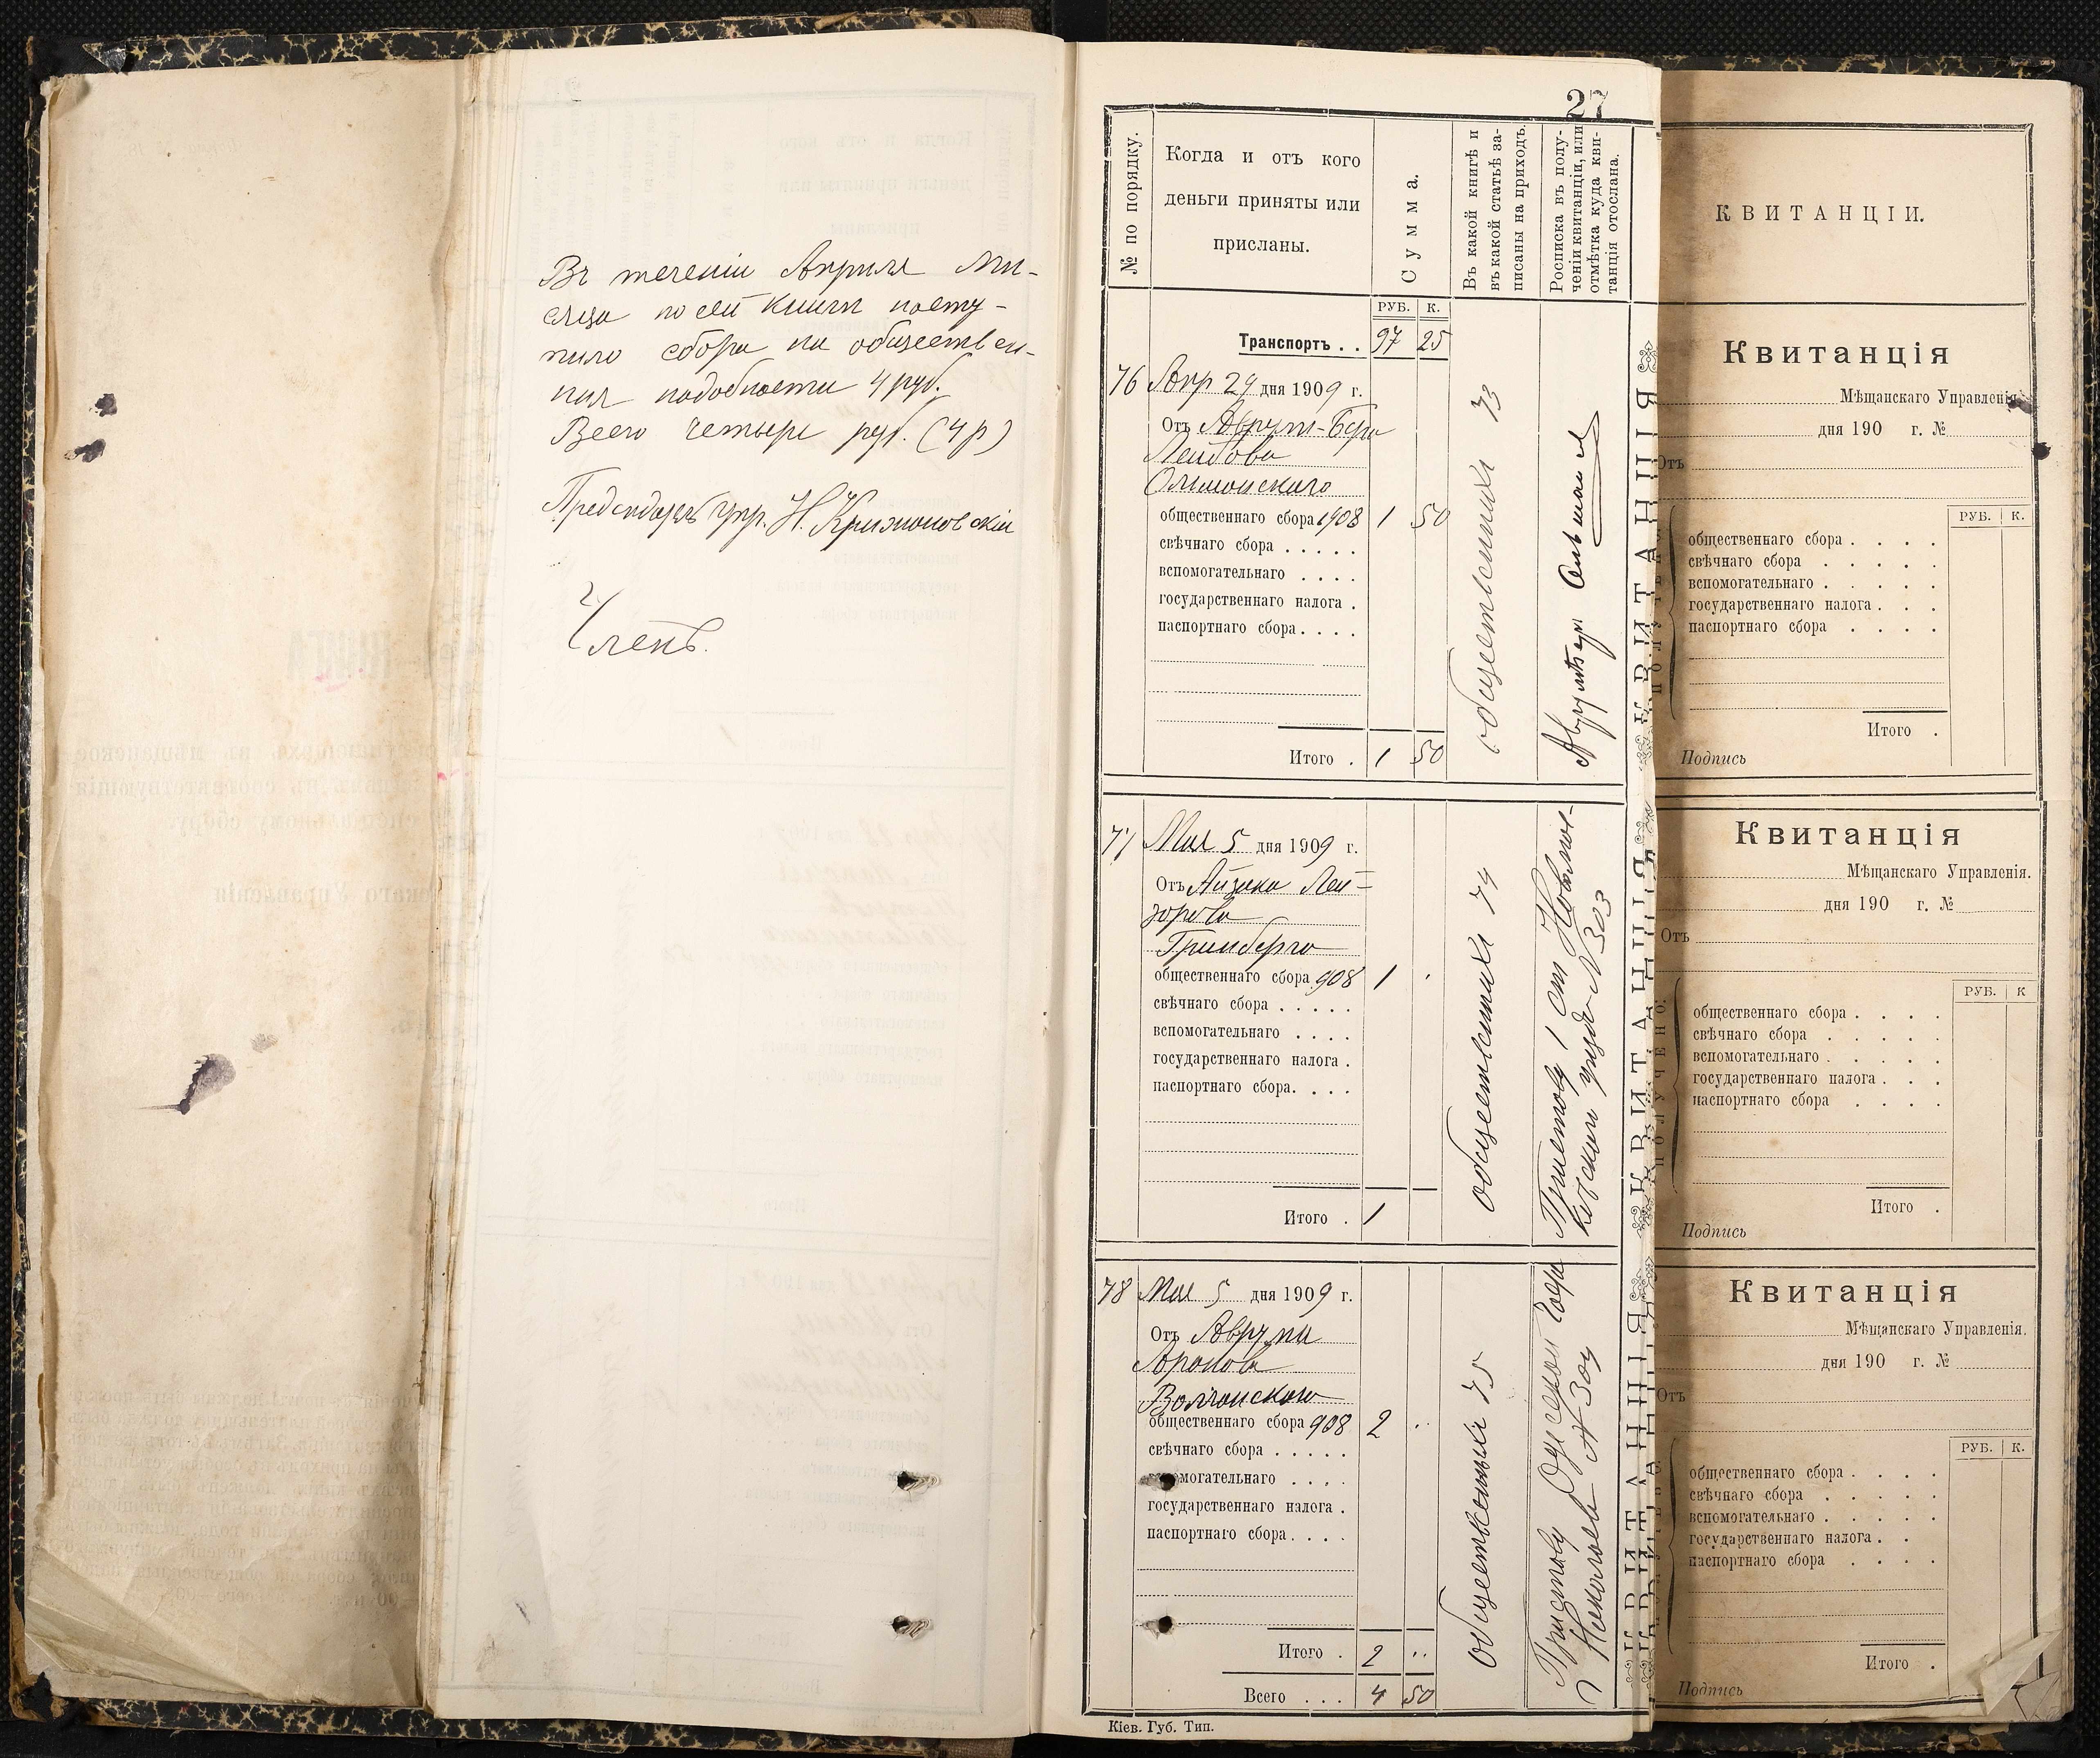 Въ теченіи Апрѣля мѣ-
сяца по сей книги посту-
пило сбора на обществен-
ныя надобности 4 руб.
Всего четыре руб. (4 р)
Предсѣдатель Упр. Н. Крижановскій
Членъ.
27
№ по порядку.
Когда и отъ кого
деньги приняты или
присланы.
Сумма.
Въ какой книгѣ и
въ какой статьѣ за-
писаны на приходъ.
Росписка въ полу-
ченіи квитанціи, или
отмѣтка куда кви-
танція отослана.
РУБ. К.
Транспортъ . . 97 25
76 Апр 29 дня 1909 г.
Отъ Аврум-Бера
Лейбова
общественнаго сбора 1908 1 50
свѣчнаго сбора . . . . .
вспомогательнаго . . . .
государственнаго налога .
паспортнаго сбора . . . .
Итого . 1 50
общественныхъ 73
77 Мая 5 дня 1909 г.
Отъ Айзика Лей-
зорова
Гринберга
общественнаго сбора 908 1
свѣчнаго сбора . . . . .
вспомогательнаго . . . .
государственнаго налога .
паспортнаго сбора. . . .
Итого . 1
общественныхъ 74
Приставу 1 ст
уѣзда № 303
78 Мая 5 дня 1909 г.
Отъ Аврума
Аронова
Волчанскаго
общественнаго сбора 908 2
свѣчнаго сбора . . . . .
вспомогательнаго . . . .
государственнаго налога .
паспортнаго сбора . . . .
Итого . 2
Всего . . . 4 50
общественныхъ 75
Приставу Одесской
г Николаева № 304
Кіев. Губ. Тип.
КВИТАНЦІЯ
КВИТАНЦІЯ
КВИТАНЦІЯ
КВИТАНЦІИ.
Квитанція
Мѣщанскаго Управленія.
дня 190 г. №
Отъ
РУБ. К.
общественнаго сбора . . . .
свѣчнаго сбора . . . . .
вспомогательнаго . . . . .
государственнаго налога . . .
паспортнаго сбора . . . .
Итого .
Подпись
Квитанція
Мѣщанскаго Управленія.
дня 190 г. №
Отъ
РУБ. К
ПОЛУЧЕНО:
общественнаго сбора . . . .
свѣчнаго сбора . . . . .
вспомогательнаго . . . . .
государственнаго налога . . .
паспортнаго сбора . . . .
Итого .
Подпись
Квитанція
Мѣщанскаго Управленія.
дня 190 г. №
Отъ
РУБ. К.
общественнаго сбора . . . .
свѣчнаго сбора . . . . .
вспомогательнаго . . . . .
государственнаго налога . .
паспортнаго сбора . . . .
Итого .
Подпись